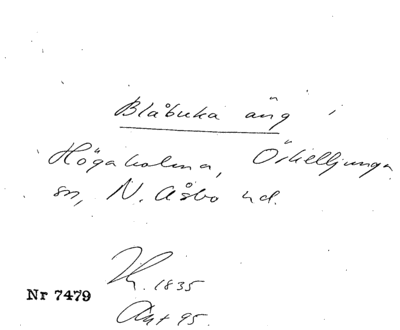 Blåbuka äng i
Högaholma, Örkelljunga
sn, N. Åsbo hd.
H. 1835
Nr 7479
Akt 95.